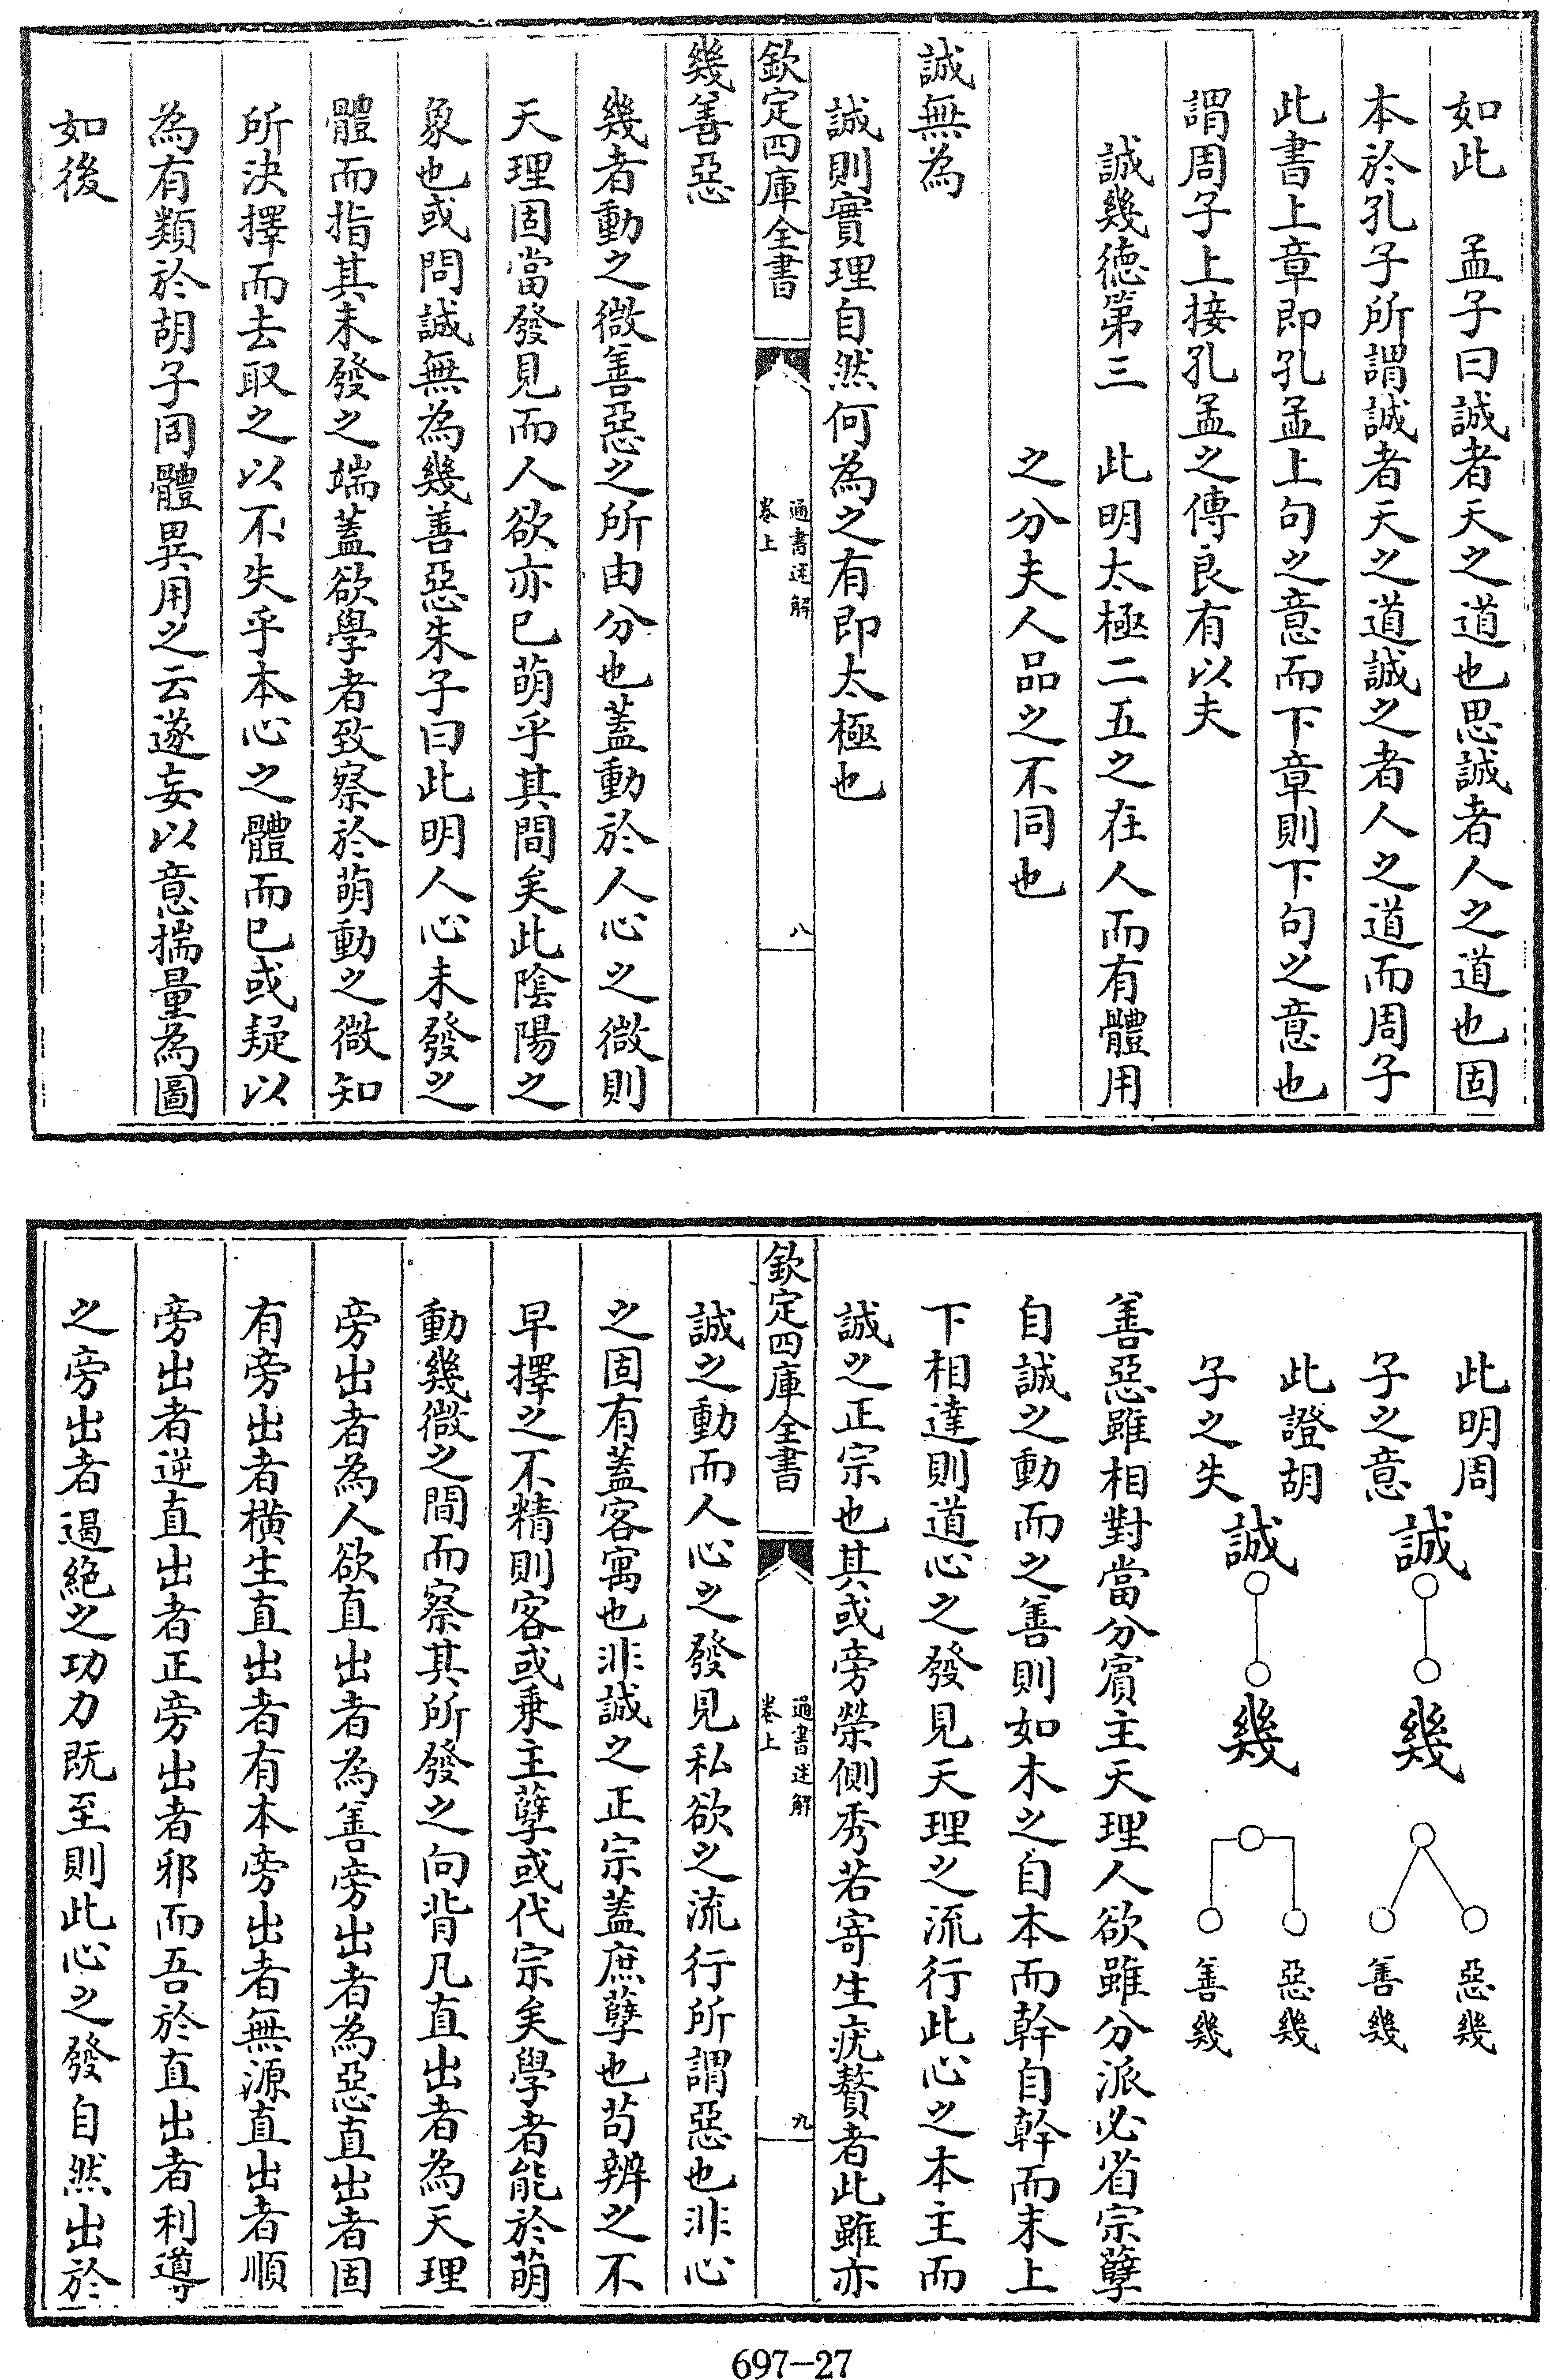 如此　孟子曰誠者天之道也思誠者人之道也固
本於孔子所謂誠者天之道誠之者人之道而周子
此書上章即孔孟上句之意而下章則下句之意也
謂周子上接孔孟之傳良有以夫
誠幾德第三　此明太極二五之在人而有體用
之分夫人品之不同也
誠無為
誠則實理自然何為之有即太極也
欽定四庫全書
通書述解
卷上
八
幾善惡
幾者動之微善惡之所由分也蓋動於人心之微則
天理固當發見而人欲亦已萌乎其間矣此陰陽之
象也或問誠無為幾善惡朱子曰此明人心未發之
體而指其未發之端蓋欲學者致察於萌動之微知
所決擇而去取之以不失乎本心之體而已或疑以
為有類於胡子同體異用之云遂妄以意揣量為圖
如後
此明周
子之意
誠
幾
惡幾
善幾
此證胡
子之失
誠
幾
惡幾
善幾
善惡雖相對當分賓主天理人欲雖分派必省宗孽
自誠之動而之善則如木之自本而幹自幹而末上
下相達則道心之發見天理之流行此心之本主而
誠之正宗也其或旁榮側秀若寄生疣贅者此雖亦
欽定四庫全書
通書述解
卷上
九
誠之動而人心之發見私欲之流行所謂惡也非心
之固有蓋客寓也非誠之正宗蓋庶孽也苟辨之不
早擇之不精則客或乗主孽或代宗矣學者能於萌
動幾微之間而察其所發之向背凡直出者為天理
旁出者為人欲直出者為善旁出者為惡直出者固
有旁出者橫生直出者有本旁出者無源直出者順
旁出者逆直出者正旁出者邪而吾於直出者利導
之旁出者遏絶之功力既至則此心之發自然出於
697-27